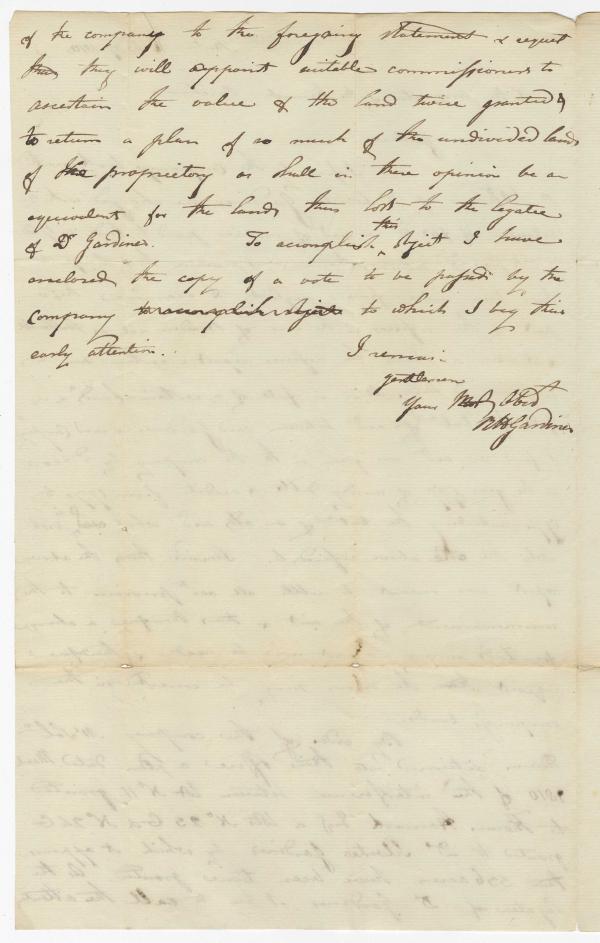 of the company to the foregoing statement & request
that they will appoint suitable commissioners to
ascertain the value of the land twice granted &
to return a plan of so much of the undivided lands
of the propriety as shall in there opinion be an
equivalent for the lands thus lost to the legatee
of Dr Gardiner. To acomplish this object I have
enclosed the copy of a vote to be passed by the
company to accomplish object to which I beg their
early attention.
I remain
gentlemen
Your Most Obedt
RH Gardiner